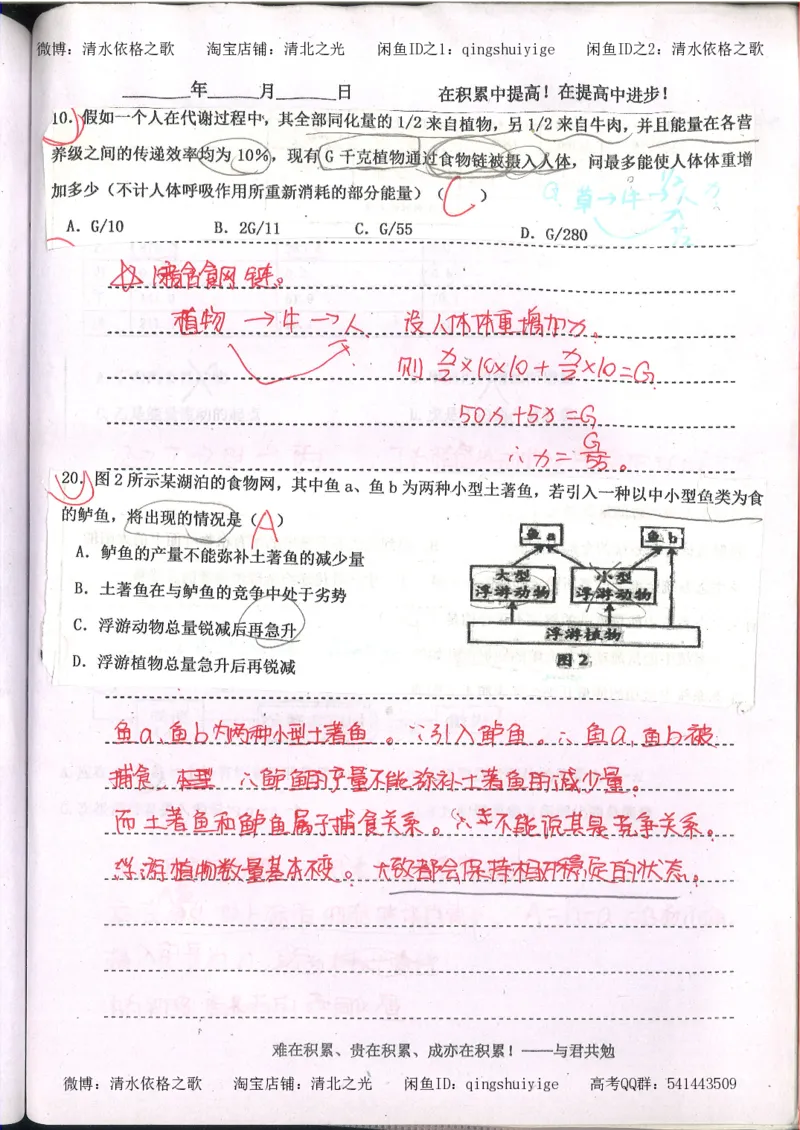 微博：清水依格之歌 淘宝店铺：清北之光 闲鱼ID之1：qingshuiyige 闲鱼ID之2：清水依格之歌
年 月 日 在积累中提高！在提高中进步！
10. 假如一个人在代谢过程中，其全部同化量的 1/2 来自植物，另 1/2 来自牛肉，并且能量在各营
养级之间的传递效率均为 10%，现有 G 千克植物通过食物链被摄入人体，问最多能使人体体重增
加多少（不计人体呼吸作用所重新消耗的部分能量）（ C ）
G 草→牛→人
A. G/10 B. 2G/11 C. G/55 D. G/280
食网链。
植物 → 牛 → 人. 设人体体重增加x。
则 x/2×10×10+x/2×10=G
50x+5x=G
∴x=G/55。
20. 图 2 所示某湖泊的食物网，其中鱼 a、鱼 b 为两种小型土著鱼，若引入一种以中小型鱼类为食
的鲈鱼，将出现的情况是（ A ）
A. 鲈鱼的产量不能弥补土著鱼的减少量
B. 土著鱼在与鲈鱼的竞争中处于劣势
C. 浮游动物总量锐减后再急升
D. 浮游植物总量急升后再锐减
鱼 a 鱼 b
大型 小型
浮游动物 浮游动物
浮游植物
图 2
鱼a、鱼b为两种小型土著鱼。∵引入鲈鱼。∴鱼a，鱼b被
捕食, ∴鲈鱼的产量不能弥补土著鱼的减少量。
而土著鱼和鲈鱼属于捕食关系。不能说其是竞争关系。
浮游植物数量基本不变。大致都会保持相对稳定的状态。
难在积累、贵在积累、成亦在积累！——与君共勉
微博：清水依格之歌 淘宝店铺：清北之光 闲鱼ID：qingshuiyige 高考QQ群：541443509